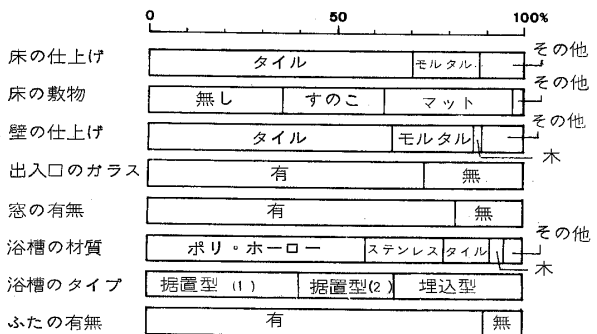 0 50 100%
その他
床の仕上げ タイル モルタル
その他
床の敷物 無し すのこ マット
その他
壁の仕上げ タイル モルタル
木
出入口のガラス 有 無
窓の有無 有 無
その他
浴槽の材質 ポリ・ホーロー ステンレス タイル
木
浴槽のタイプ 据置型 (1) 据置型(2) 埋込型
ふたの有無 有 無